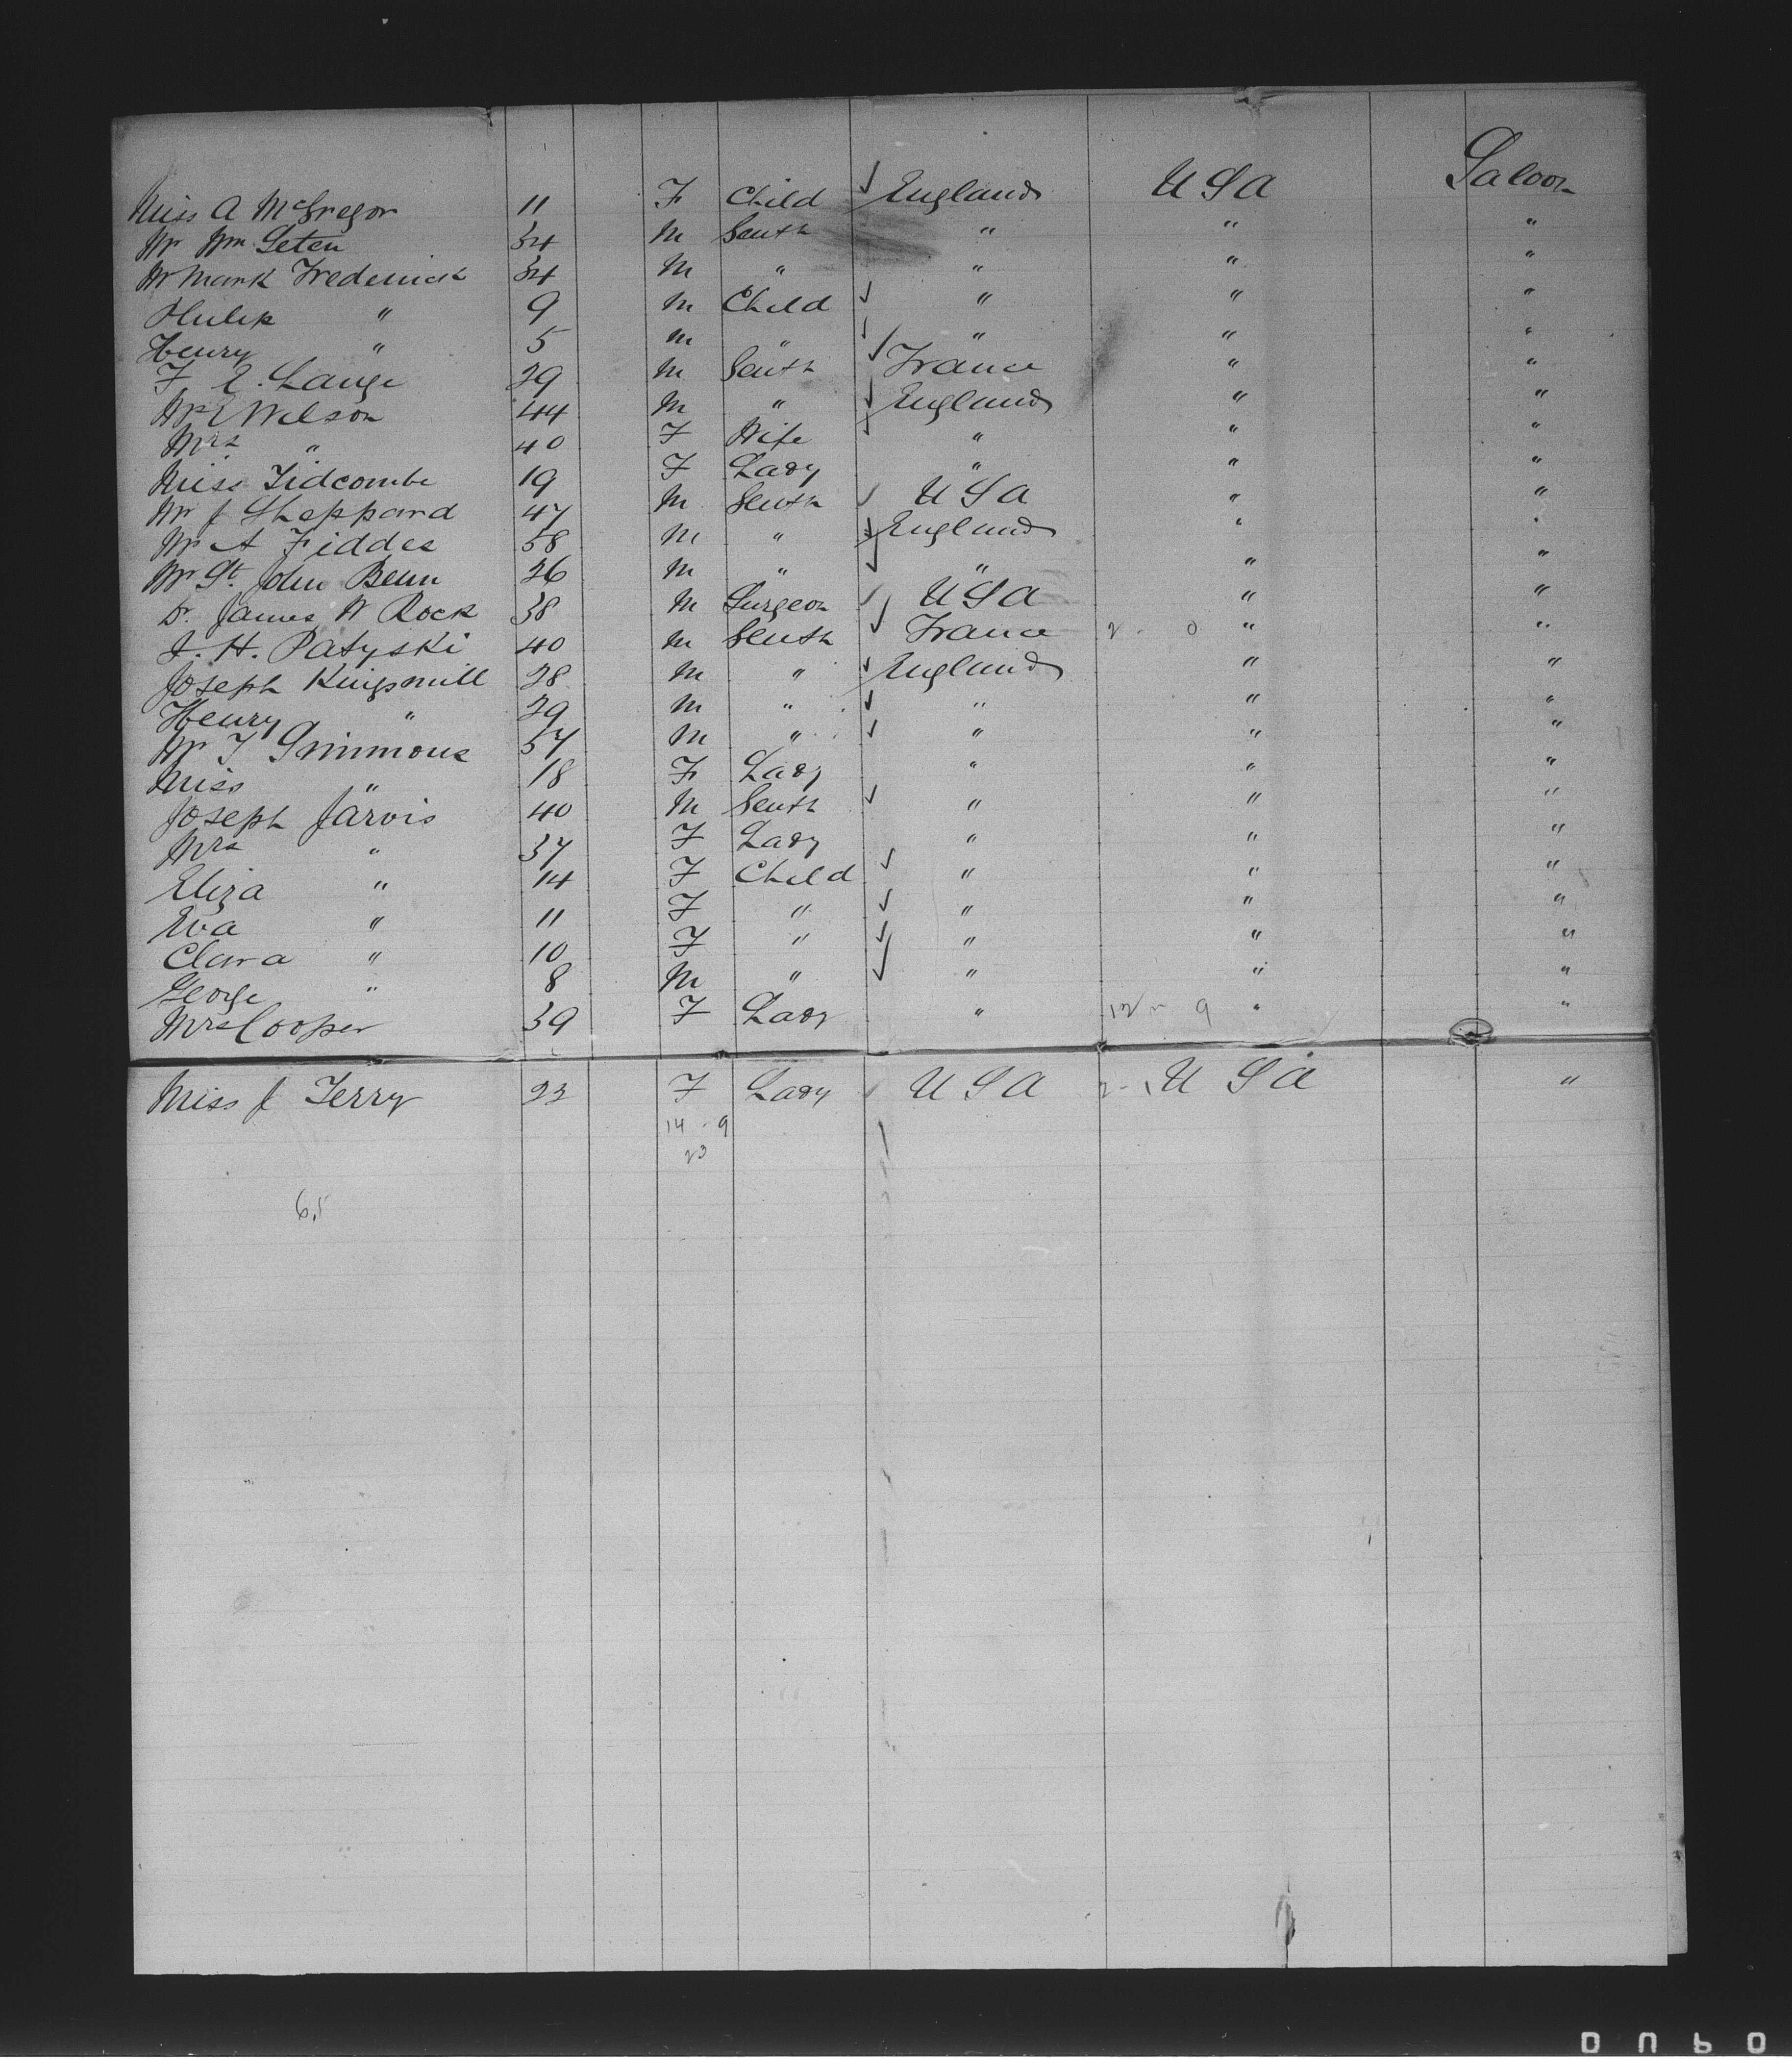 Miss A McGregor 11 F Child England USA Saloon
Mr Wm Seten 34 M Gentn " " "
Mr Mark Frederick 34 M " " " "
Philip " 9 M Child " " "
Henry " 5 M " " " "
F E. Lange 29 M Gentn France " "
Mr Wilson 44 M " England " "
Mrs " 40 F Wife " " "
Miss Tidcombe 19 F Lady " " "
Mr J Sheppard 47 M Gentn USA " "
Mr A Fiddes 58 M " England " "
Mr St. John Benn 26 M " " " "
Dr. James W Rock 38 M Surgeon USA " "
J. H. Patyski 40 M Gentn France 2 - 0 " "
Joseph Kingsmill 28 M " England " "
Henry " 29 M " " " "
Mr T Simmons 57 M " " " "
Miss " 18 F Lady " " "
Joseph Jarvis 40 M Gentn " " "
Mrs " 37 F Lady " " "
Eliza " 14 F Child " " "
Eva " 11 F " " " "
Clara " 10 F " " " "
George " 8 M " " " "
Mrs Cooper 39 F Lady " 12 - 9 " "
Miss J Terry 22 F Lady USA 2 - 1 USA "
14 - 9
23
65